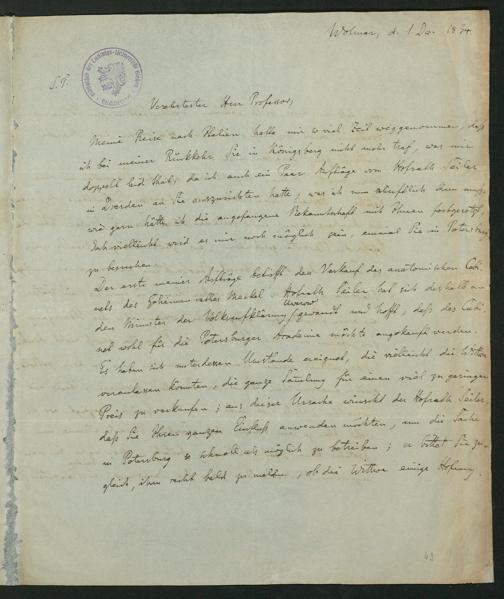 Wolmar, d. 1 Dec. 1834.
S. T.
Verehrtester Herr Professor,
Meine Reise nach Italien hatte mir so viel Zeit weggenommen, daß
ich bei meiner Rückkehr Sie in Königsberg nicht mehr traf, was mir
doppelt leid that, da ich auch ein Paar Aufträge vom Hofrath Seiler
in Dresden an Sie auszurichten hatte, was ich nun schriftlich thun muß;
wie gern hätte ich die angefangene Bekanntschaft mit Ihnen fortgesetzt,
doch vielleicht wird es mir noch möglich sein, einmal Sie in Petersburg
zu besuchen.
Der erste meiner Aufträge betrifft den Verkauf des anatomischen Cabi-
nets des Geheimen Rathes Meckel. Hofrath Seiler hat sich deshalb an
den Minister der Volksaufklärung Uwarow gewandt und hofft, daß das Cabi-
net wohl für die Petersburger Academie möchte angekauft werden.
Es haben sich unterdessen Umstände ereignet, die vielleicht die Wittwe
veranlassen könnten, die ganze Samlung für einen viel zu geringen
Preis zu verkaufen; aus dieser Ursache wünscht der Hofrath Seiler,
daß Sie Ihren ganzen Einfluß anwenden möchten, um die Sache
in Petersburg so schnell als möglich zu betreiben; er bittet Sie zu-
gleich, ihm recht bald zu melden, ob die Wittwe einige Hofnung
49